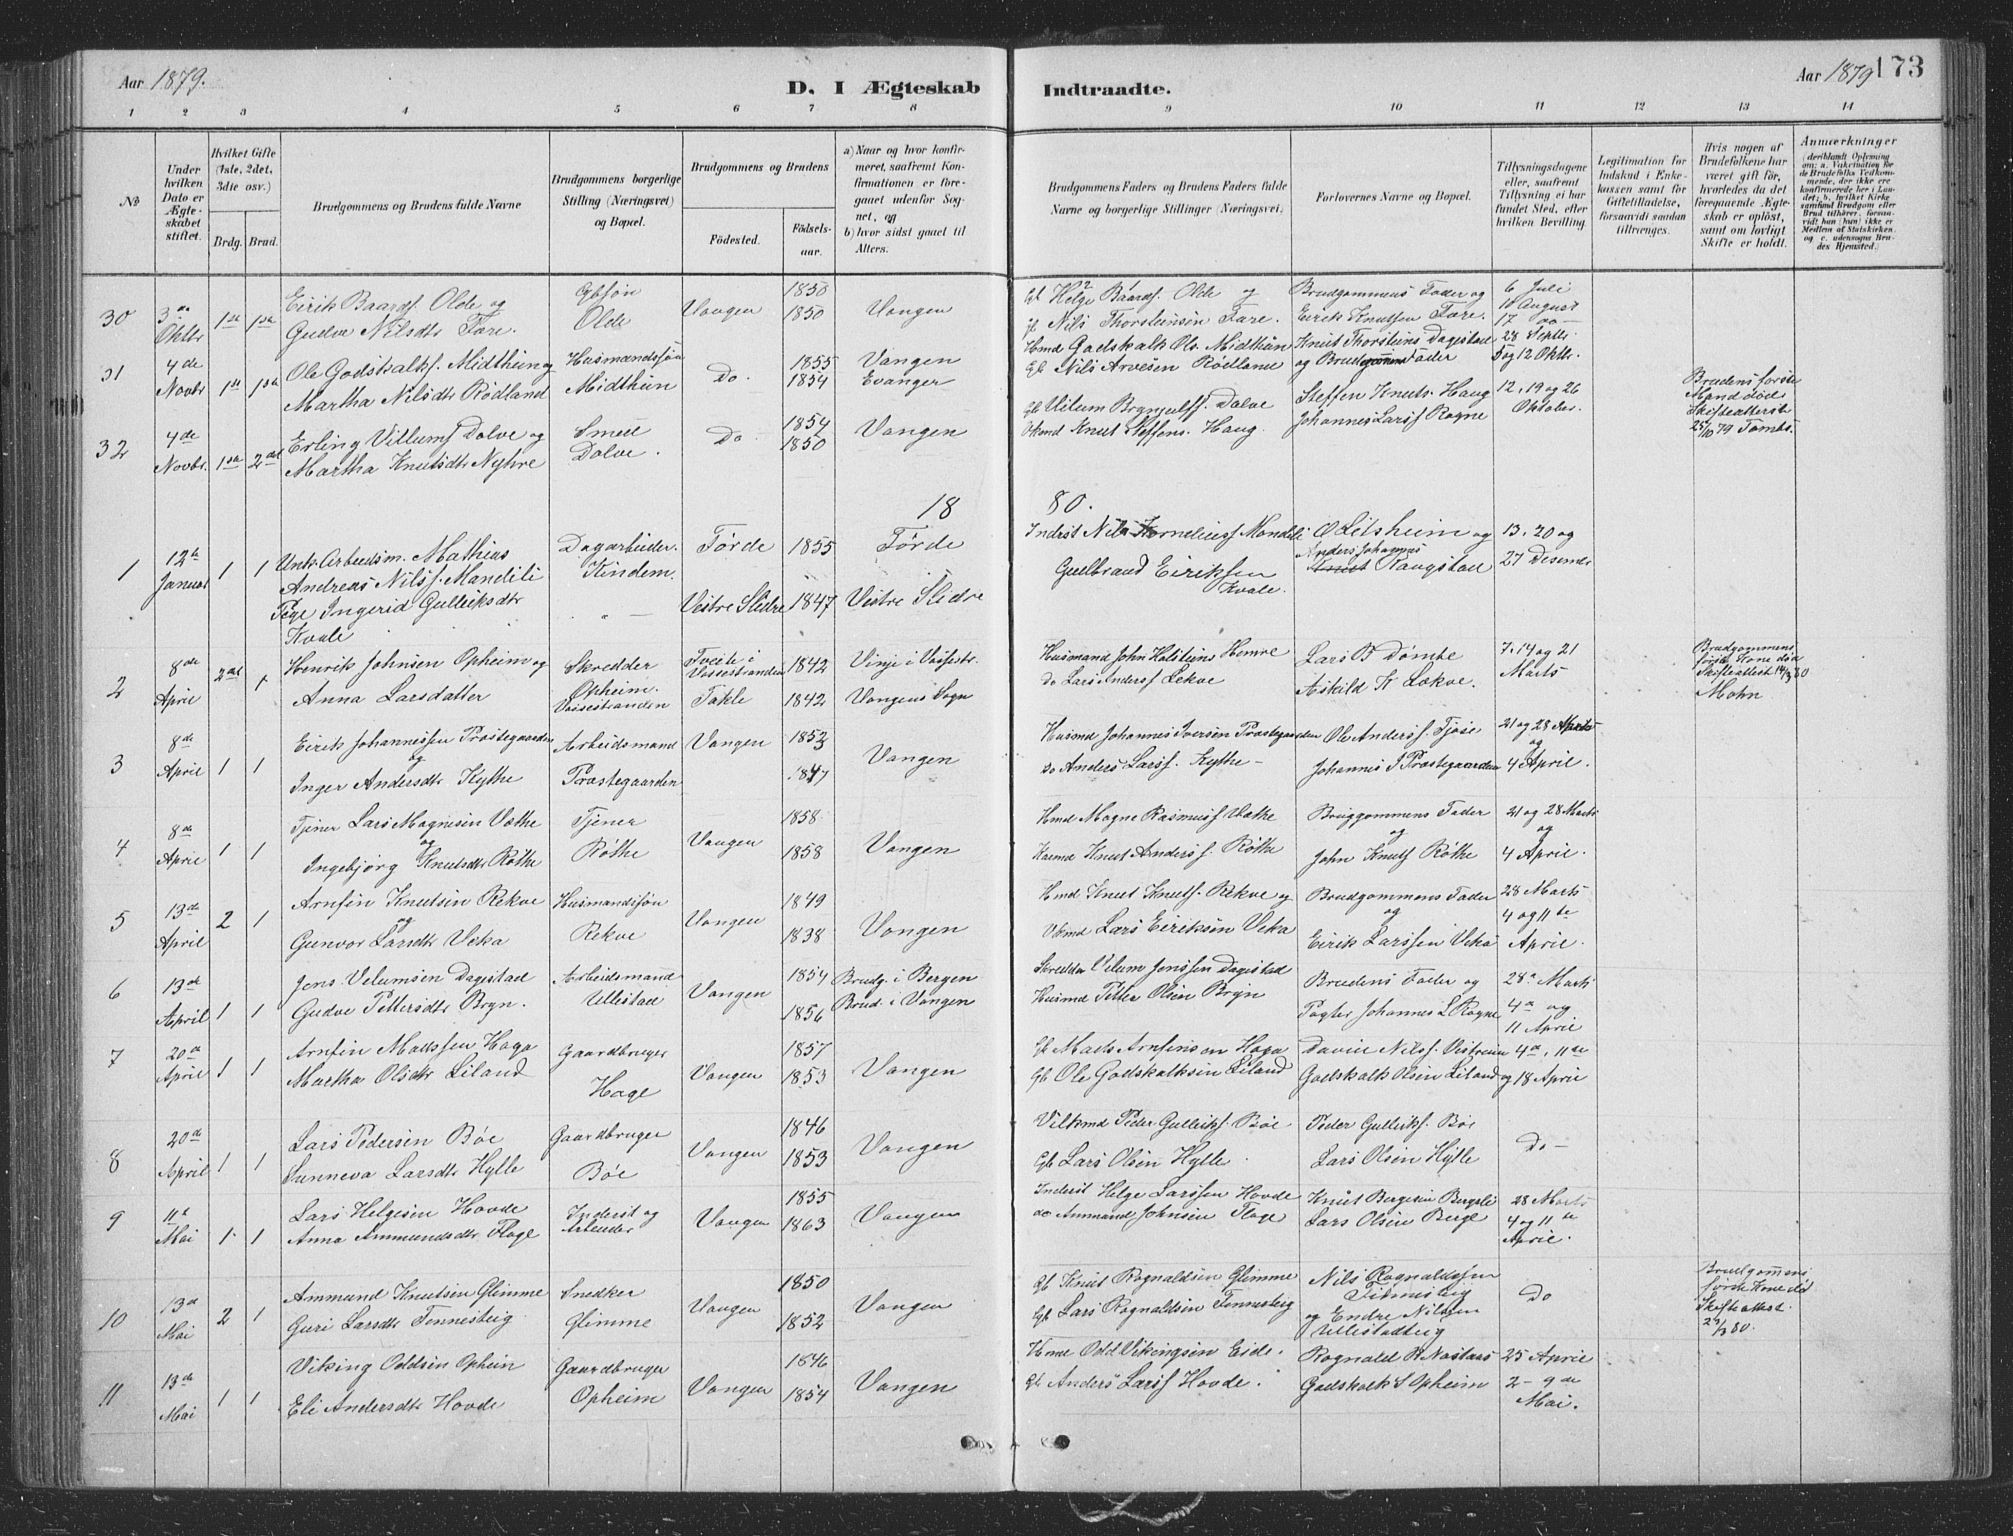 Aar 1879.
D. I Ægteskab Indtraadte.
Aar 1879
173
1 2 3 4 5 6 7 8 9 10 11 12 13 14
№
Under hvilken Dato er Ægteskabet stiftet.
Hvilket Gifte (1ste, 2det, 3die osv.)
Brdg. Brud.
Brudgommens og Brudens fulde Navne
Brudgommens borgerlige Stilling (Næringsvei) og Bopæl.
Brudgommens og Brudens
Födested.
Födselsaar.
a) Naar og hvor konfirmeret, saafremt Konfirmationen er foregaaet udenfor Sognet, og
b) hvor sidst gaaet til Alters.
Brudgommens Faders og Brudens Faders fulde Navne og borgerlige Stillinger (Næringsvei)
Forlovernes Navne og Bopæl.
Tillysningsdagene eller, saafremt Tillysning ei har fundet Sted, efter hvilken Bevilling.
Legitimation for Indskud i Enkekassen samt for Giftetilladelse, forsaavidt saadan tiltrænges.
Hvis nogen af Brudefolkene har været gift för, hvorledes da det foregaaende Ægteskab er oplöst, samt om lovligt Skifte er holdt.
Anmærkninger
30 3die Oktbr 1ste 1ste Eirik Baards. Olde og Gbsøn 1850 Vangen
Gudve Nilsdtr Fære. Olde Vangen 1850
Helge Baards. Olde og Brudgommens Fader og 6 Juli
Nils Thorsteinsen Fære. Eirik Knutsen Fære. 10 August
31 4de Novbr 1ste 1ste Ole Godskalks. Midthun og Husmandssøn Do. 1855 Vangen
Martha Nilsdtr Rødland Midthun 1854 Evanger
Hmd Godskalk Ols. Midthun Knut Thorsteins. Dagestad 28 Septbr
Nils Arvesen Rødland og Brudgommens Fader 5 og 12 Oktbr.
32 4de Novbr. 1ste 2det Erling Villums. Dolve og Smed Do. 1854 Vangen
Martha Knutsdtr Nyhre Dolve. 1850
Vilum Brynjulfs. Dolve Steffen Knuts. Haug 12, 19 og 26
Knut Steffens. Haug. Johannes Lars. Rogne Oktober.
Brudens første Mand død Skifteattest 25/10 79
18 80.
1 12te Januar 1 1 Ungk. Arbeidsm. Mathias Dagarbeider. Førde 1855 Førde
Andreas Nilss. Mandili Kindem.
Pige Ingerid Gulliksdtr Vestre Slidre 1847 Vestre Slidre
Kvale
Inderst Nils Kornelius. Mandili O Litsheim og 13, 20 og
Gulbrand Eiriksen Kvale. Anders Johannes Raugstad 27 Desember
2 8de April 2det 1 Henrik Johnsen Opheim og Skredder Tveite i Vossestranden 1842 Vinje i Vossestr.
Anna Larsdatter Opheim. Vossestranden Takle 1842 Vangens Sogn
Husmand John Holsteins Hemre Lars B Dømbe 7, 14 og 21
do Lars Anders. Lekve Askild K Lekve. Marts
Brudgommens første Kone død Skifteattest 14/3 80 Mohn
3 8de April 1 1 Eirik Johannessen Præstegaarden Arbeidsmand Vangen 1853 Vangen
og
Inger Andersdtr Kythe Præstegaarden 1847
Husmd Johannes Iversen Præstegaarden Ole Anders. Tjøse 21 og 28 Marts og
do Anders Lars. Kythe – Johannes I Præstegaarden 4 April.
4 8de April 1 1 Tjener Lars Magnesen Væthe Tjener Vangen 1858 Vangen
og
Ingebjørg Knutsdtr Røthe Røthe 1858
Hmd Magne Rasmus. Væthe Bruggommens Fader 21 og 28 Marts
og og
Knut Anders. Røthe John Knuts. Røthe 4 April.
5 13de April 2 1 Arnfin Knutsen Rekve Husmandssøn Vangen 1849 Vangen
og
Gunvor Larsdtr Veka Rekve 1838
Hmd Knut Knuts. Rekve og Brudgommens Fader 28 Marts
og 4 og 11te
Lars Eiriksen Veka Eirik Larssen Veka April.
6 13de April 1 1 Jens Velumsen Dagestad Arbeidsmand Vangen 1854 Brudg. i Bergen
Gudve Pettersdtr Bryn. Ullestad 1856 Brud. i Vangen
Skredder Velum Jenssen Dagestad Brudens Fader og 28de Marts
Husmd Petter Olsen Bryn Johannes L Rogne 4de og
11 April
7 20de April 1 1 Arnfin Madssen Haga Gaardbruger Vangen 1857 Vangen
Martha Olsdtr Liland Hage 1853
Mads Arnfinsen Haga David Nils. Vestrein 4de, 11te
Ole Godskalksen Liland Godskalk Olsen Liland og 18 April
8 20de April 1 1 Lars Pedersen Bøe Gaardbruger Vangen 1846 Vangen
Sunneva Larsdtr Hylle Bøe 1853
Peder Gulliks. Bøe Peder Gulliks. Bøe
Lars Olsen Hylle Lars Olsen Hylle Do –
9 11te Mai 1 1 Lars Helgesen Hovde Inderst og Vangen 1855 Vangen
Anna Ammundsdtr Flage Arbeider 1863
Inderst Helge Larssen Hovde Knut Bergesen Bergslo 28 Marts
do Ammund Johnsen Flage Lars Olsen Berge 4 og 11te
April.
10 13de Mai 2 1 Ammund Knutsen Glimme Snedker Vangen 1850 Vangen
Guri Larsdtr Finnesteig Glimme 1852
Knut Rognaldsen Glimme Nils Rognaldssen Finnesteig
Lars Rognaldsen Finnesteig og Endre Nilssen Do
Brudgommens første Kone død Skifteattest
11 13de Mai 1 1 Viking Oddsen Opheim Gaardbruger Vangen 1846 Vangen
Eli Andersdtr Hovde Opheim 1854
Odd Vikingsen Eide. Rognald 25 April
Anders Larss Hovde. Godskalk S Opheim 2 – 9de
Mai.